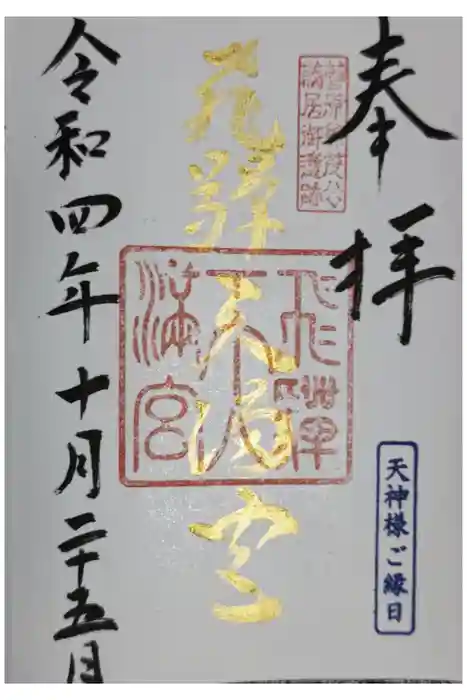 奉拝
天神様ご縁日
菅原兼茂公
謫居御遺跡
飛騨天満宮
飛騨
天
満宮
令和四年十月二十五日